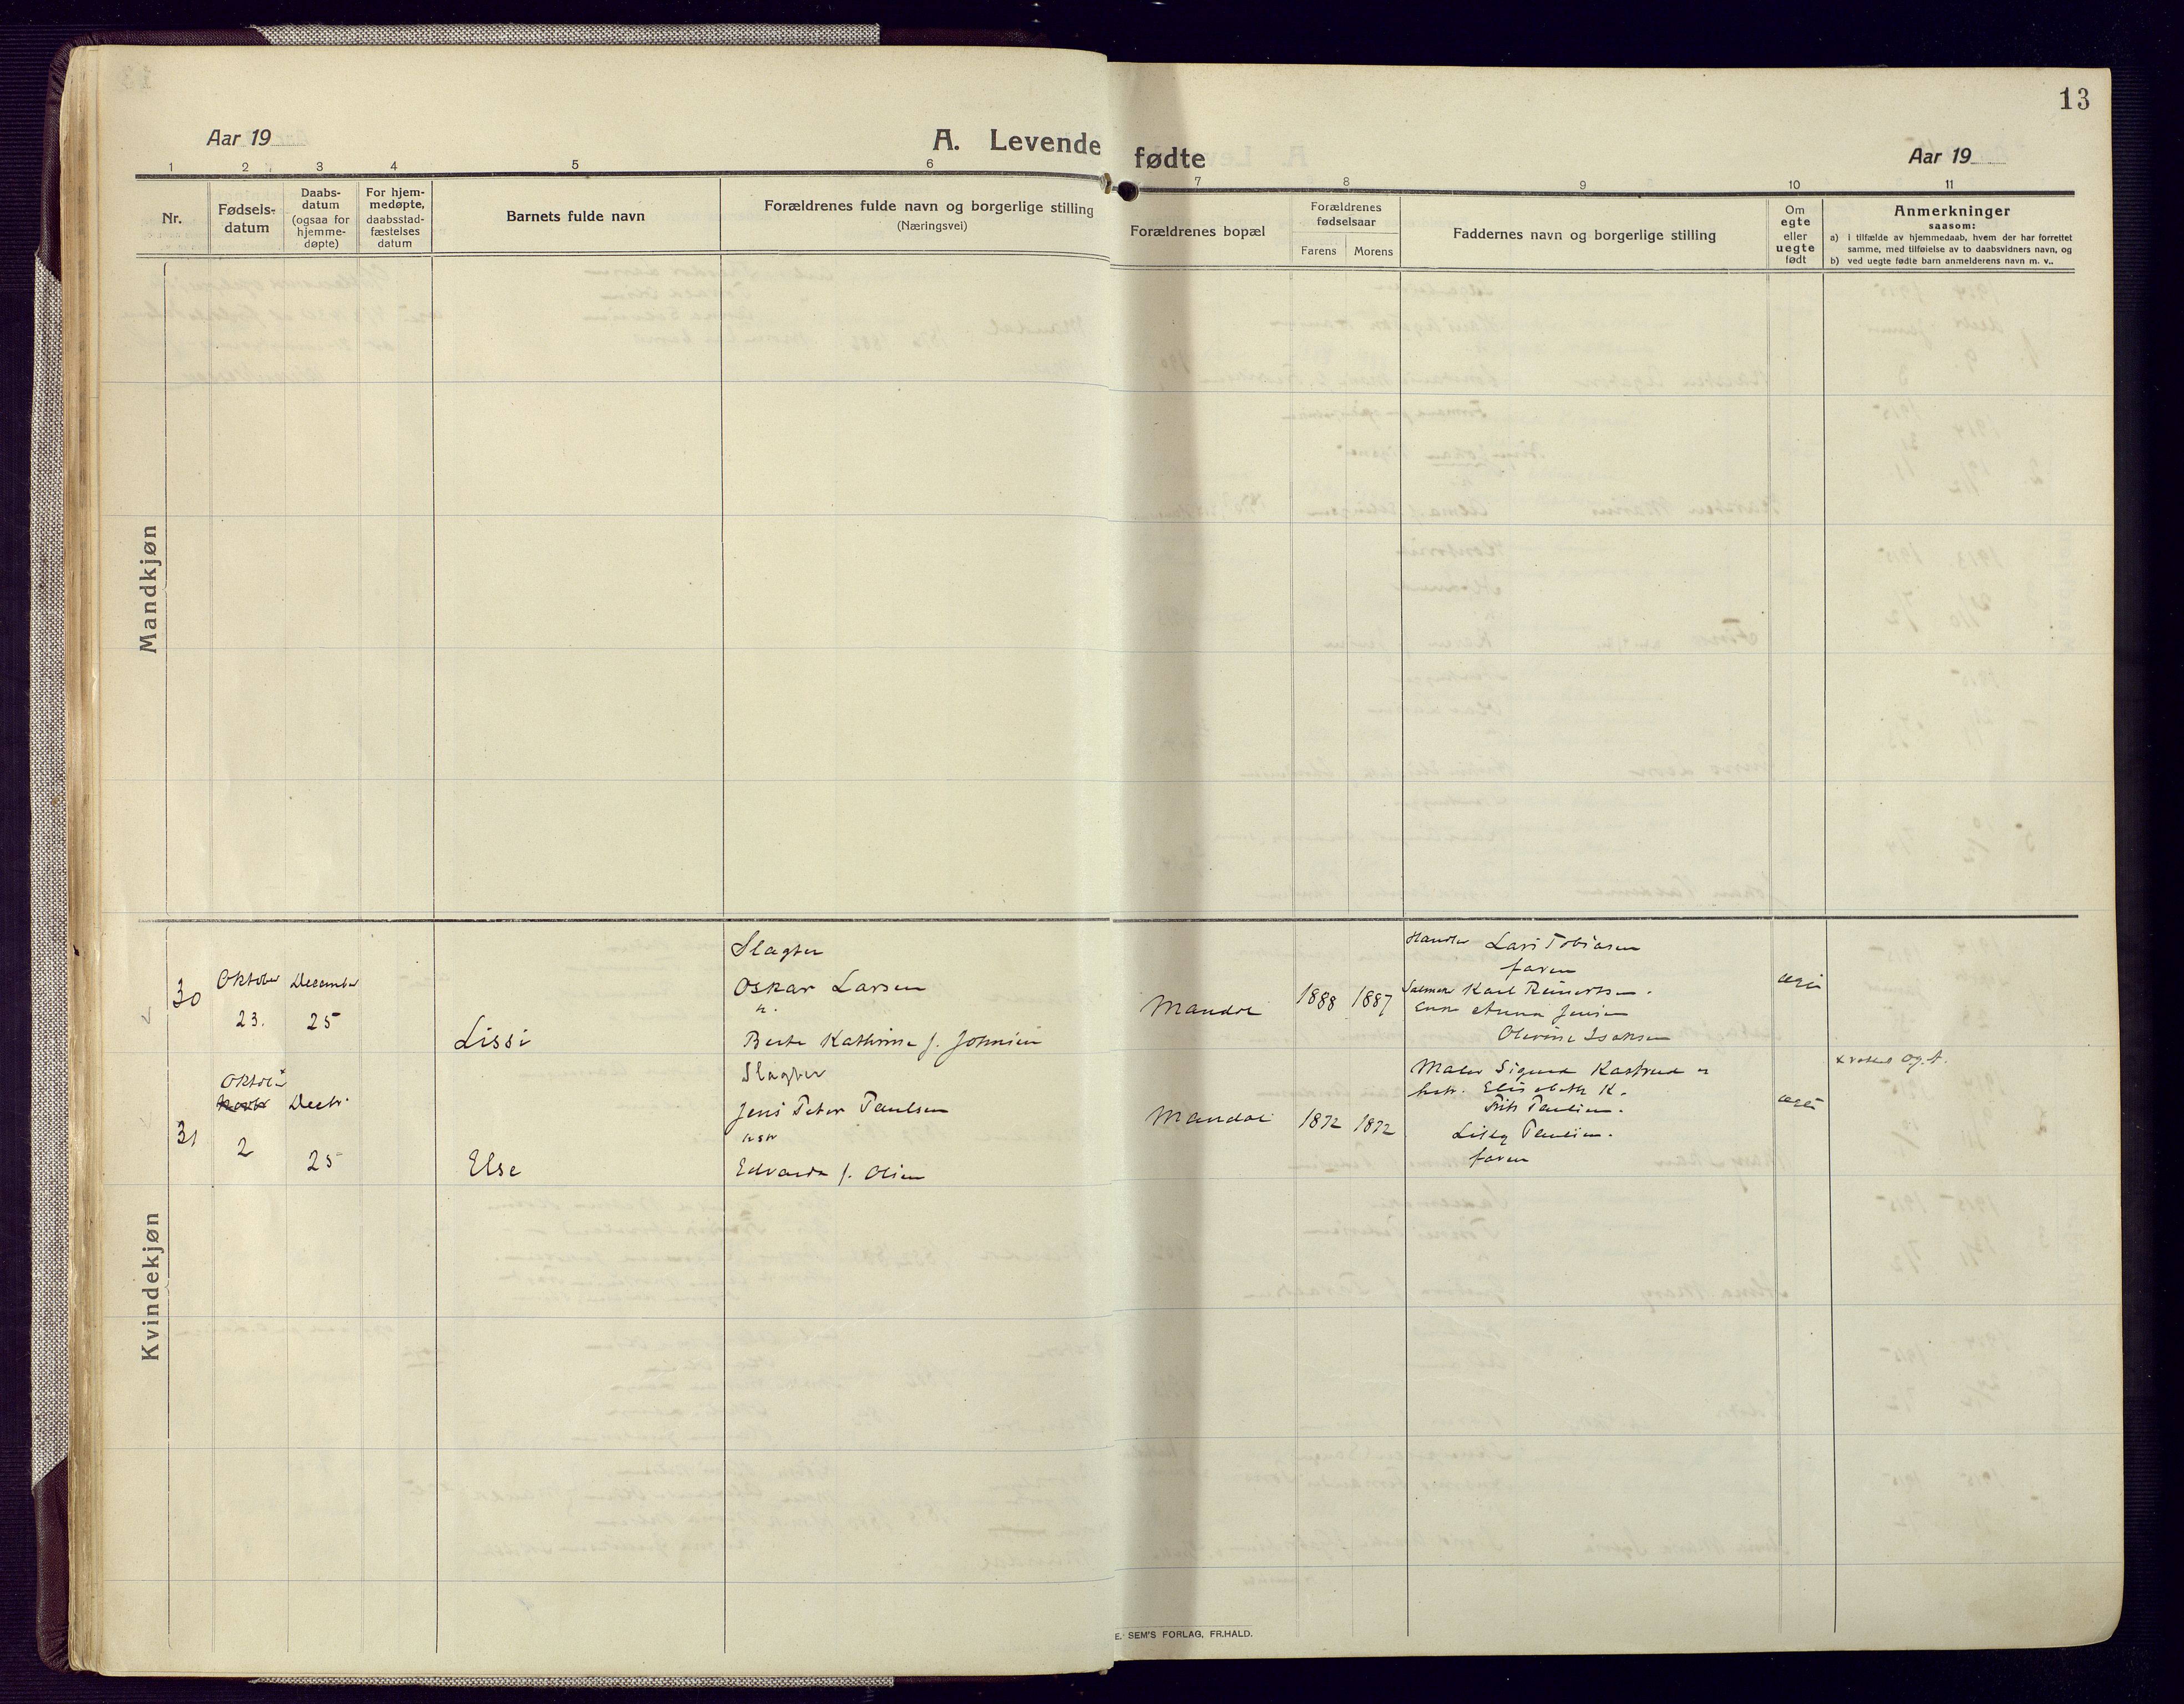 13
Aar 19
A. Levende fødte
Aar 19
1 2 3 4 5 6 7 8 9 10 11
Nr.
Fødsels-
datum
Daabs-
datum
(ogsaa for
hjemme-
døpte)
For hjem-
medøpte,
daabsstad-
fæstelses
datum
Barnets fulde navn
Forældrenes fulde navn og borgerlige stilling
(Næringsvei)
Forældrenes bopæl
Forældrenes
fødselsaar
Farens Morens
Faddernes navn og borgerlige stilling
Om
egte
eller
uegte
født
Anmerkninger
saasom:
a) i tilfælde av hjemmedaab, hvem der har forrettet
samme, med tilføielse av to daabsvidners navn, og
b) ved uegte fødle barn anmelderens navn m. v..
Mandkjøn
Kvindekjøn
30
Oktober
23.
December
25
Lissi
Slagter
Oskar Larsen
h.
Berte Kathrine f. Johnsen
Mandal
1888 1887
Lars Tobiasen
faren
Karl Reinertsen.
Enke Anna Jensen
Olivine Isaksen
ægte
31
Oktbr
2
Decbr.
25
Else
Slagter
Jens Peter Paulsen
Edvarda f. Olsen
Mandal
1872 1872
Maler Sigurd Kastrud
hstr. Elisabeth K.
Frits Paulsen.
Lilly Paulsen.
faren
ægte
E. SEM'S FORLAG, FR.HALD.